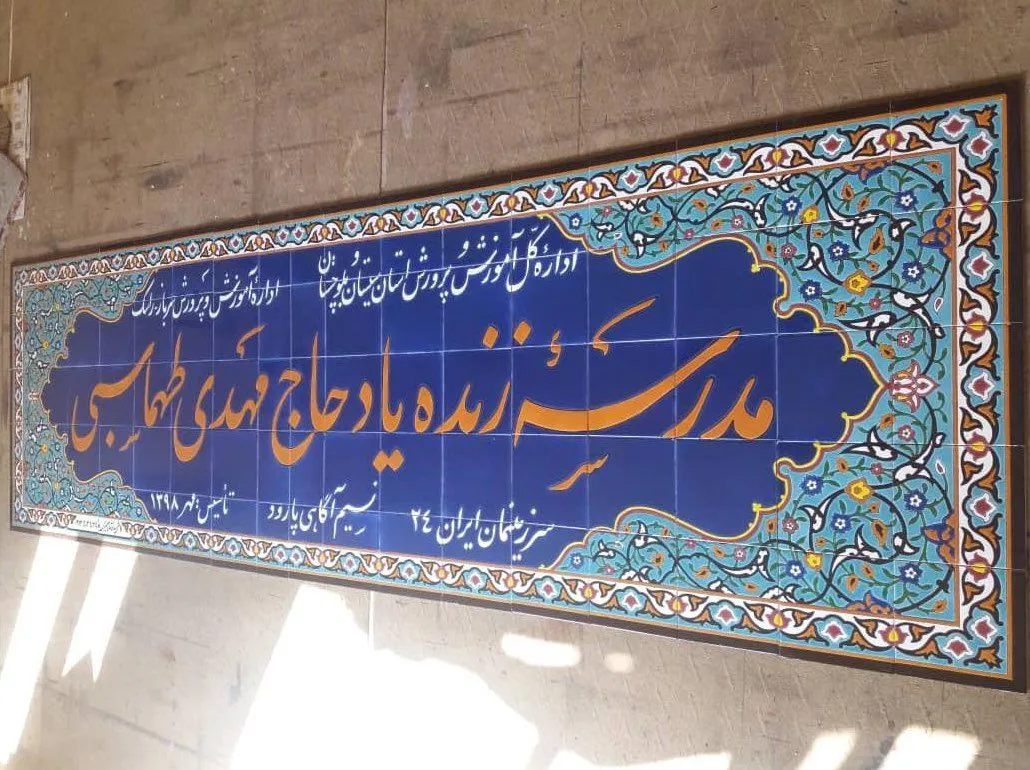 ادارهٔ کل آموزش و پرورش استان سیستان و بلوچستان
ادارهٔ آموزش و پرورش سرباز-راسک
مدرسهٔ زنده یاد حاج مهدی طهماسبی
سرزمینمان ایران ۲۴
نسیم آگاهی پارود
تأسیس: مهر ۱۳۹۸